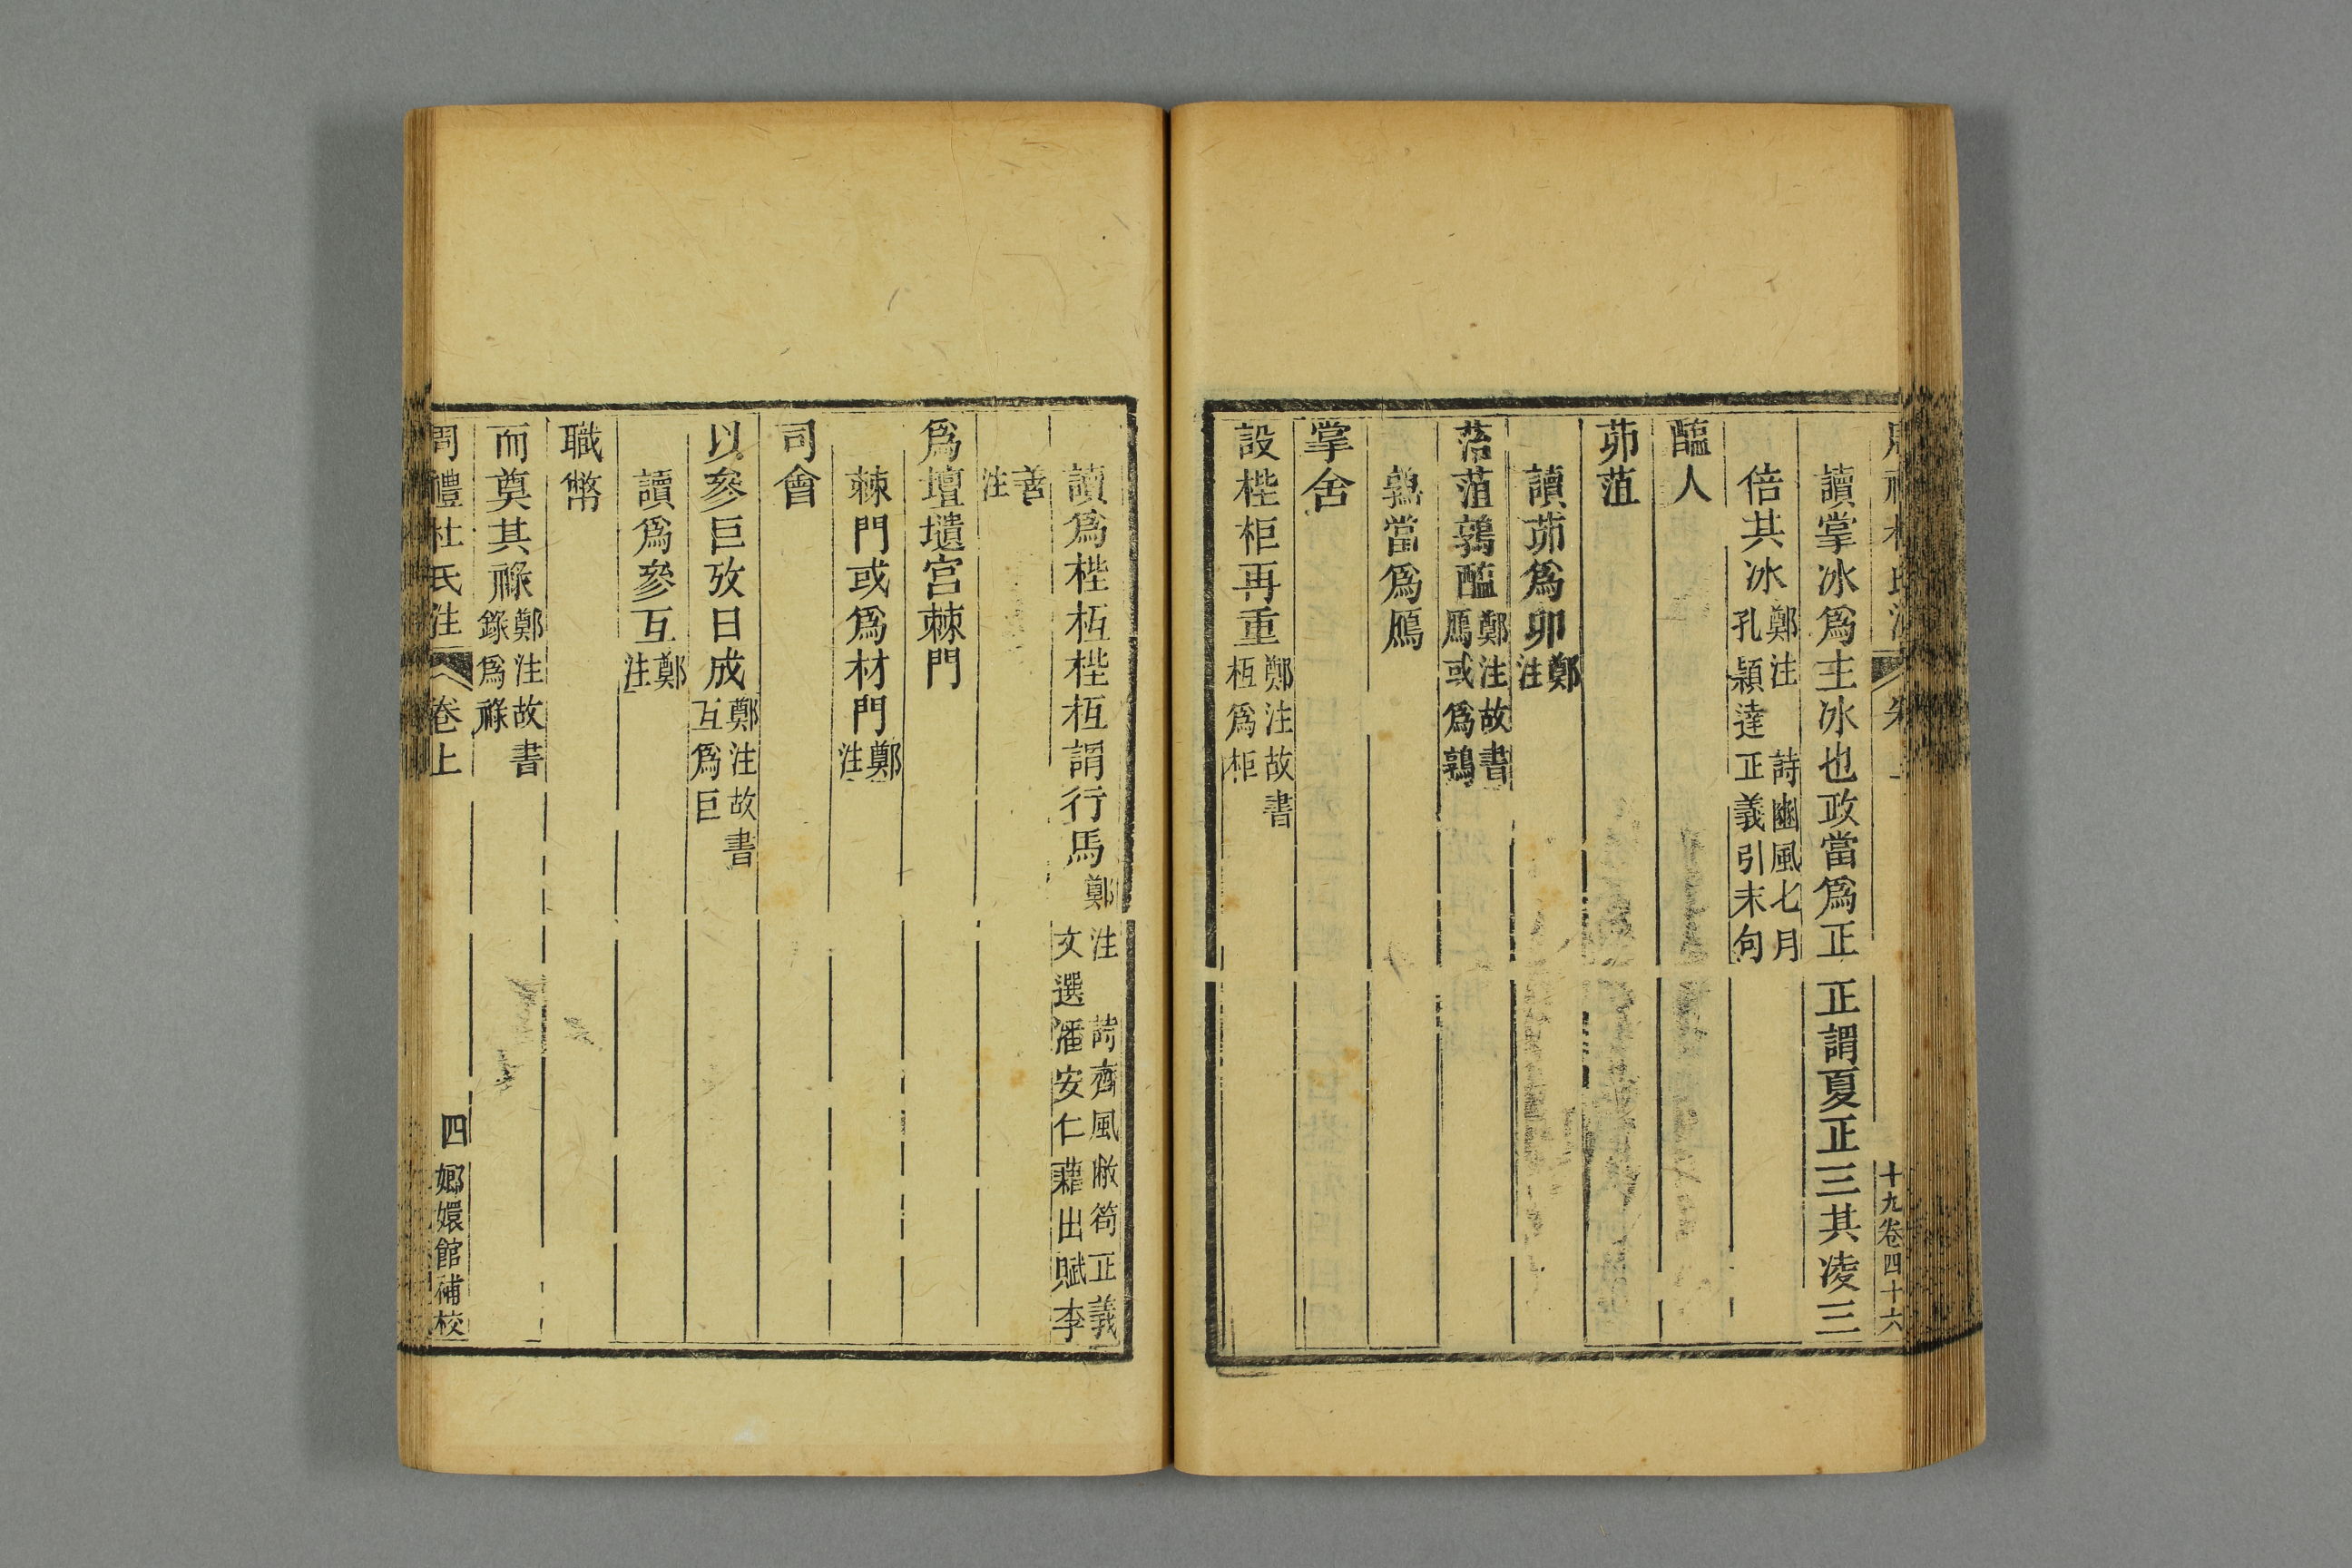 十九卷四十六
讀掌冰爲主冰也政當爲正正謂夏正三其凌三
倍其冰鄭注詩豳風七月孔穎達正義引末句
醢人
茆菹
讀茆爲卯鄭注
菭菹鶉醢鄭注故書鴈或爲鶉
鶉當爲鴈
掌舍
設梐柜再重鄭注故書枑爲柜
讀爲梐枑梐枑謂行馬鄭注詩齊風敝笱正義文選潘安仁藉田賦李
善注
爲壇壝宮棘門
棘門或爲材門鄭注
司會
以參巨攷日成鄭注故書互爲巨
讀爲參互鄭注
職幣
而奠其祿鄭注故書錄爲祿
周禮杜氏注 卷上 四 嫏嬛館補校